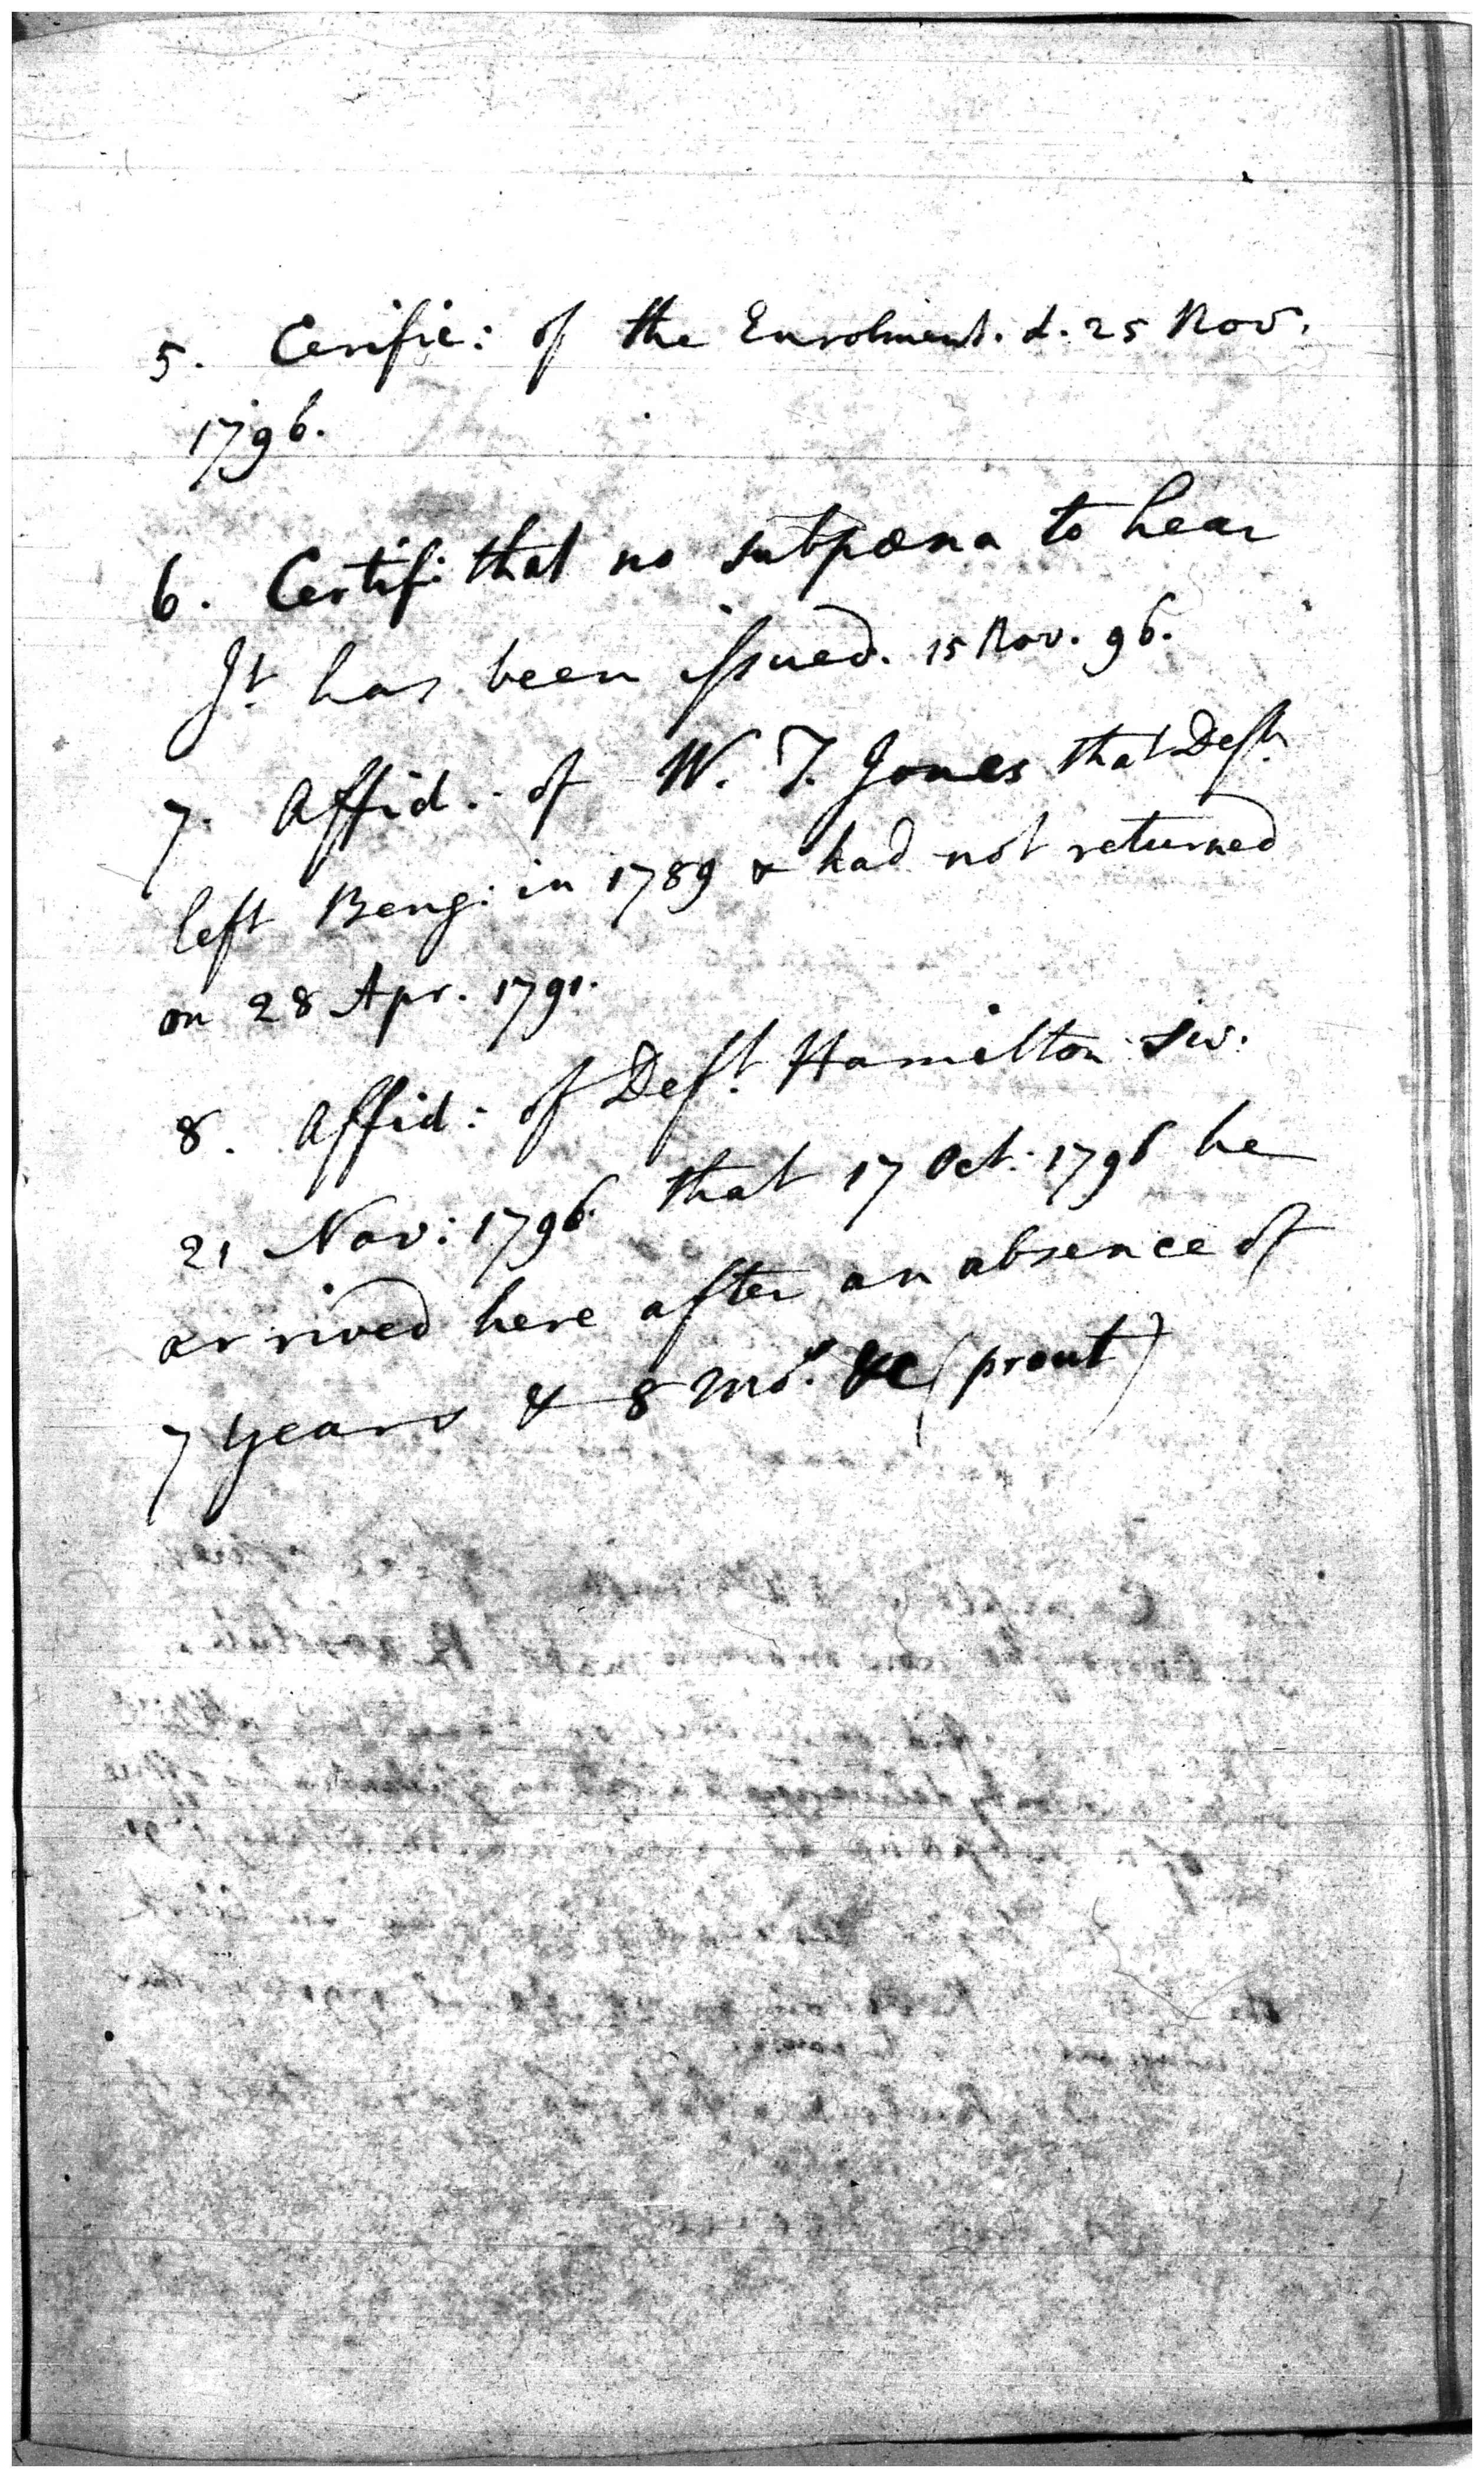 5. Cerific: of the Enrolment. d. 25 Nov.
1796.
6. Certif: that no subpœna to hear
Jt. has been issued. 15 Nov. 96.
7. Affid. of W. T. Jones that Deft.
left Beng: in 1789 & had not returned
on 28 Apr. 1791.
8. Affid: of Deft. Hamilton sw.
21 Nov: 1796. that 17 Oct: 1796 he
arrived here after an absence of
7 years & 8 mos. &c (prout)